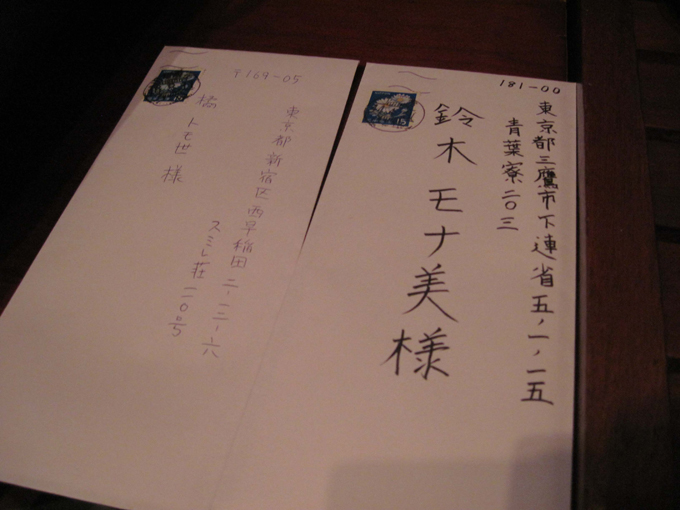 〒169-05
東京都新宿区西早稲田二-二-六
スミレ荘二〇号
橘トモ世様
181-00
東京都三鷹市下連省五,一,一五
青葉寮二〇三
鈴木モナ美様
15